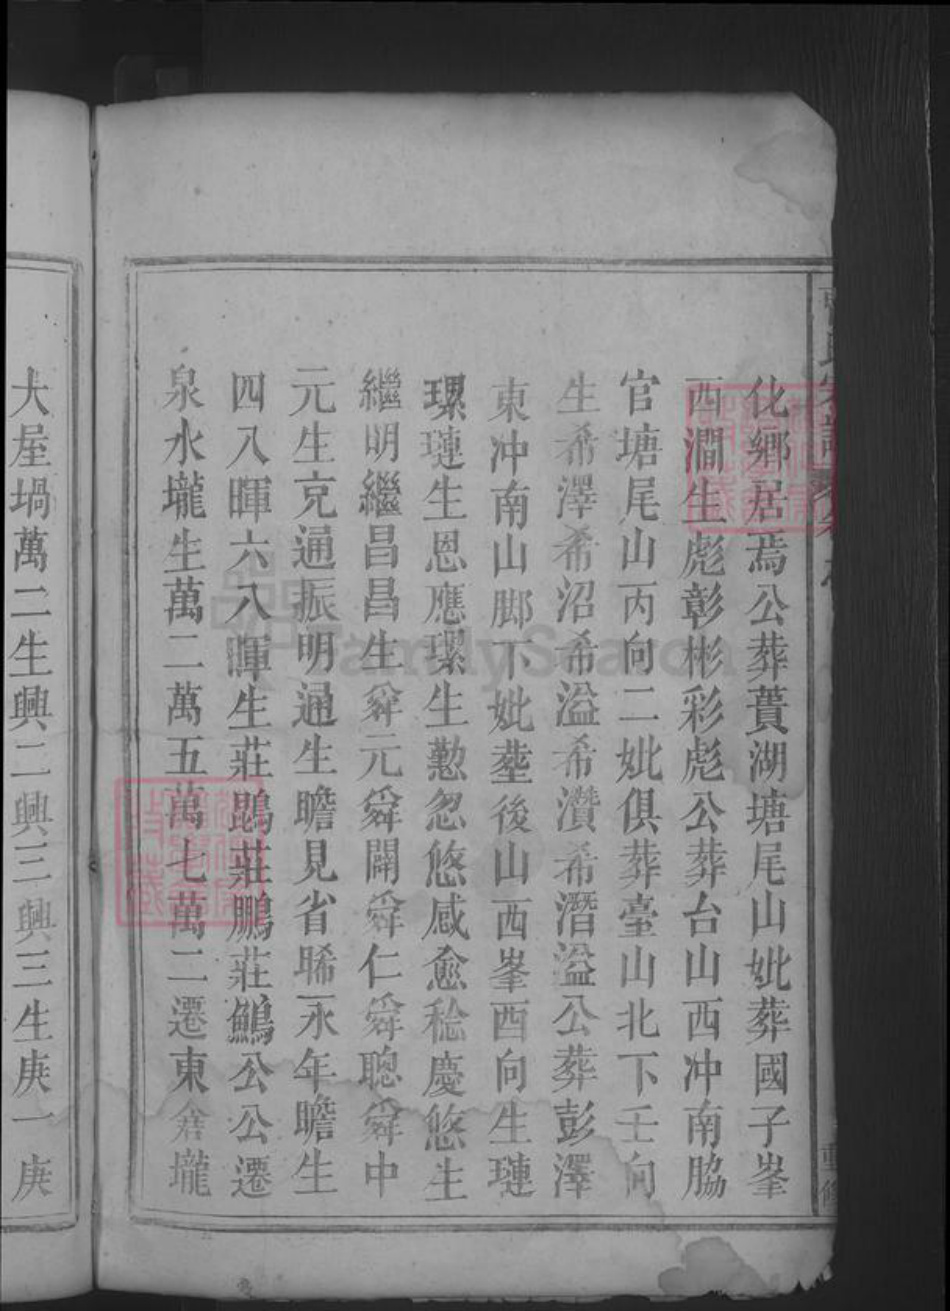 化鄉居焉公葬蕢湖塘尾山妣葬國子峯
西澗生彪彰彬彩彪公葬台山西冲南脇
官塘尾山丙向二妣俱葬臺山北下壬向
生希澤希沼希溢希瀆希潛溢公葬彭澤
東冲南山脚下妣塟後山西峯酉向生璉
璟璉生恩應璟生懃忽悠感愈稔慶悠生
繼明繼昌昌生舜元舜闢舜仁舜聰舜中
元生克通振明通生瞻見省睎永年瞻生
四八暉六八暉生莊鵾莊鵬莊鷦公公遷
泉水壠生萬二萬五萬七萬二遷東倉壠
大屋堝萬二生興二興三興三生庚一庚
FamilySearch